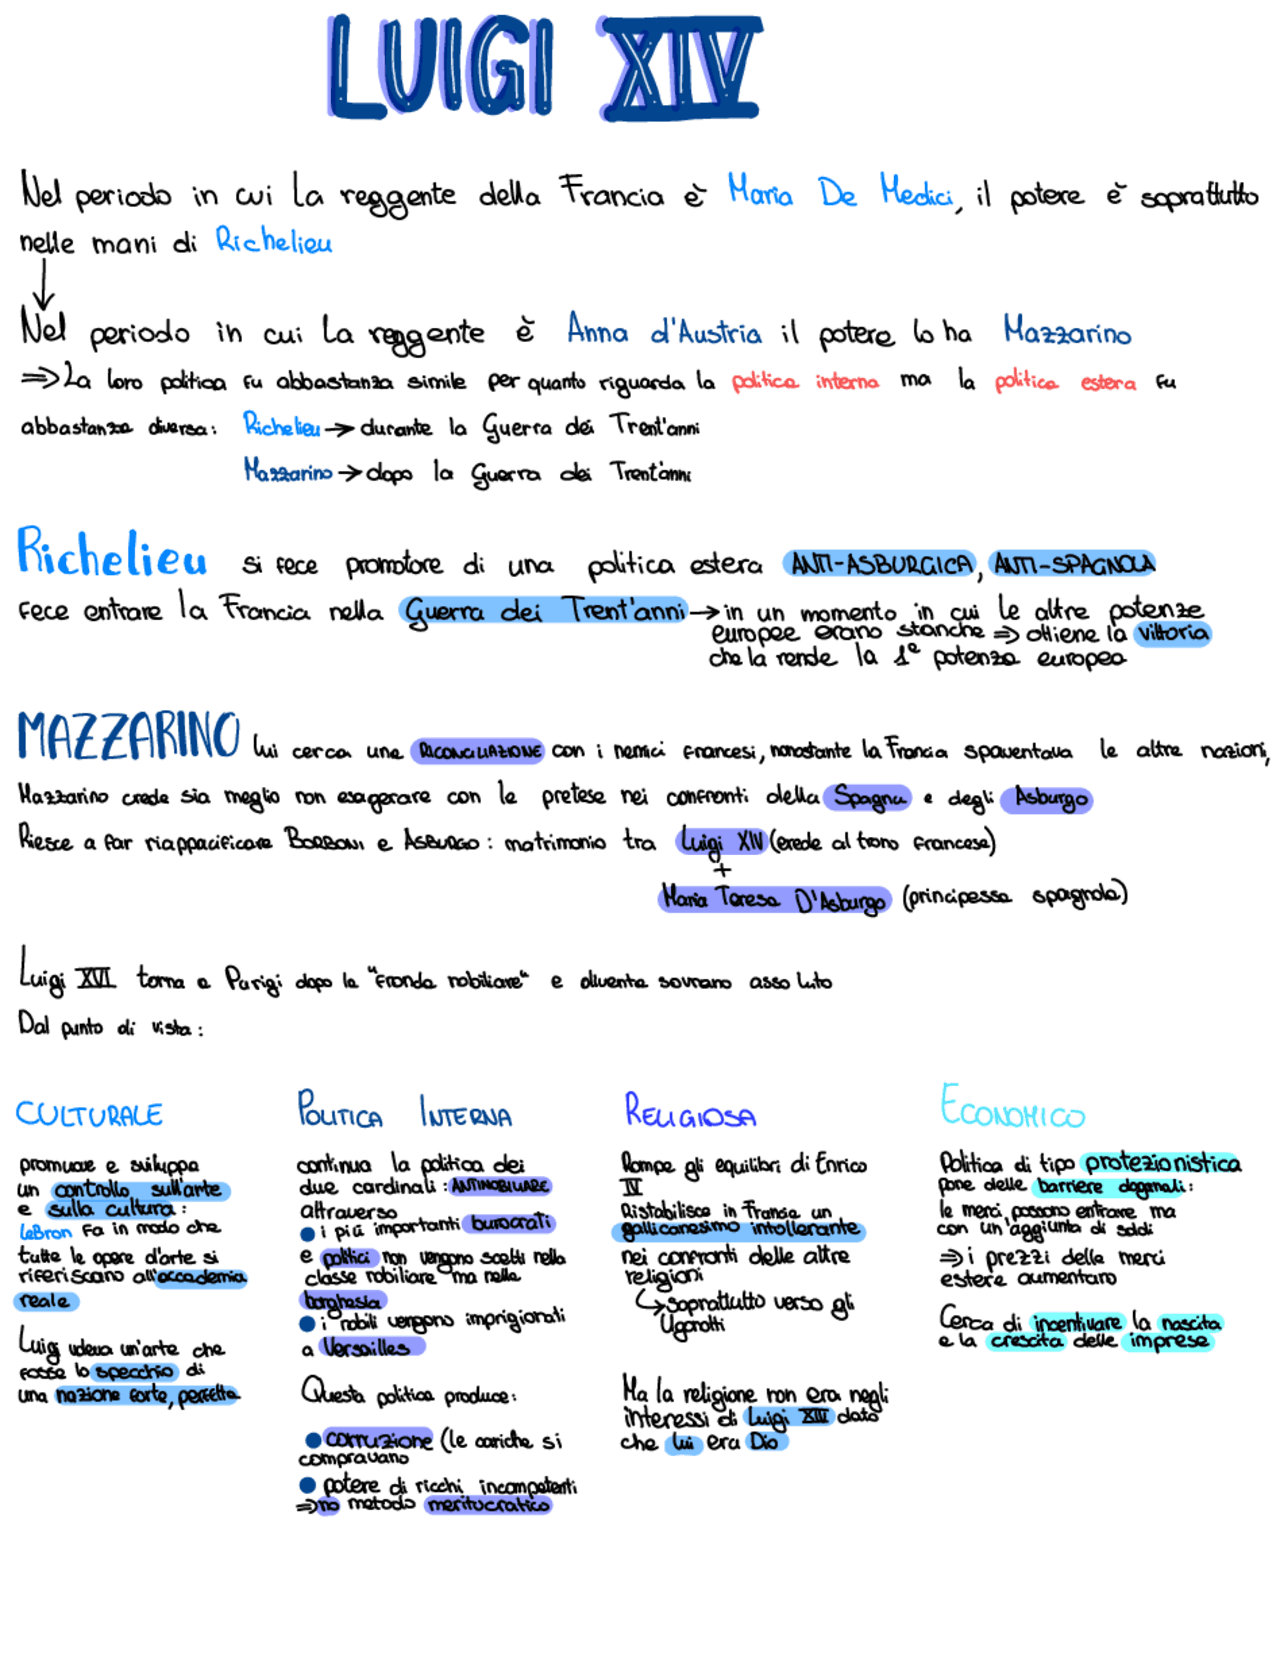 LUIGI XIV
Nel periodo in cui la reggente della Francia è Maria De Medici, il potere è soprattutto
nelle mani di Richelieu
Nel periodo in cui la reggente è Anna d'Austria il potere lo ha Mazzarino
=> La loro politica fu abbastanza simile per quanto riguarda la politica interna ma la politica estera fu
abbastanza diversa: Richelieu → durante la Guerra dei Trent'anni
Mazzarino → dopo la Guerra dei Trent'anni
Richelieu si fece promotore di una politica estera ANTI-ASBURGICA, ANTI-SPAGNOLA
Fece entrare la Francia nella Guerra dei Trent'anni → in un momento in cui le altre potenze
europee erano stanche => ottiene la vittoria
che la rende la 1ª potenza europea
MAZZARINO lui cerca una RICONCILIAZIONE con i nemici francesi, nonostante la Francia spaventava le altre nazioni,
Mazzarino crede sia meglio non esagerare con le pretese nei confronti della Spagna e degli Asburgo
Riesce a far riappacificare BORBONI e ASBURGO: matrimonio tra Luigi XIV (erede al trono francese)
+
Maria Teresa D'Asburgo (principessa spagnola)
Luigi XVI torna a Parigi dopo la "Fronda nobiliare" e diventa sovrano assoluto
Dal punto di vista:
CULTURALE
promuove e sviluppa
un controllo sull'arte
e sulla cultura:
LeBron fa in modo che
tutte le opere d'arte si
riferiscano all'accademia
reale
Luigi voleva un'arte che
fosse lo specchio di
una nazione forte, perfetta
POLITICA INTERNA
continua la politica dei
due cardinali: ANTINOBILIARE
attraverso
● i più importanti burocrati
e politici non vengono scelti nella
classe nobiliare ma nella
borghesia
● i nobili vengono imprigionati
a Versailles
Questa politica produce:
● corruzione (le cariche si
compravano
● potere di ricchi incompetenti
=> no metodo meritocratico
RELIGIOSA
Rompe gli equilibri di Enrico
IV
Ristabilisce in Francia un
gallicanesimo intollerante
nei confronti delle altre
religioni
↳ soprattutto verso gli
Ugonotti
Ma la religione non era negli
interessi di Luigi XIII dato
che lui era Dio
ECONOMICO
Politica di tipo protezionistica
pone delle barriere doganali:
le merci possono entrare ma
con un'aggiunta di soldi
=> i prezzi delle merci
estere aumentano
Cerca di incentivare la nascita
e la crescita delle imprese